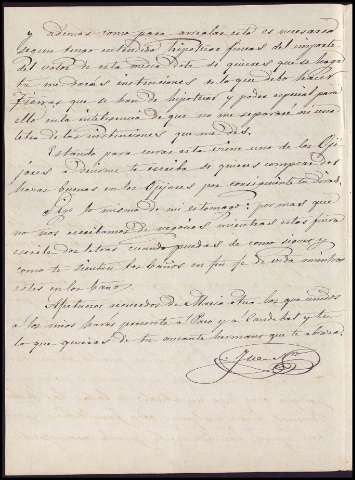 y ademas como para arreglar esto es necesario
segun tengo entendido hipotecar fincas del importe
del valor de esta media Dote si quieres que se haga
me darás instrucciones de lo que debo hacer
Fincas que se han de hipotecar y poder especial para
ello en la inteligencia de que no me separaré ni una
letra de las instrucciones que me des.
Estando para cerrar esta viene uno de los Oji
jares a decirme te escriba si quieres comprar dos
hazas buenas en los Ojijares por consiguiente tu dirás.
Sigo lo mismo de mi estomago: por mas que
no nos escribamos de negocios mientras estas fuera
escribe dos letras cuando puedas de como sigues y
como te sientan los baños en fin fe de vida mientras
estes en los baños.
Afectuosos recuerdos de Maria otra los que unidos
a los mios harás presente á Paco y á Candobal y tu
lo que quieras de tu amante hermano que te abraza
Juan